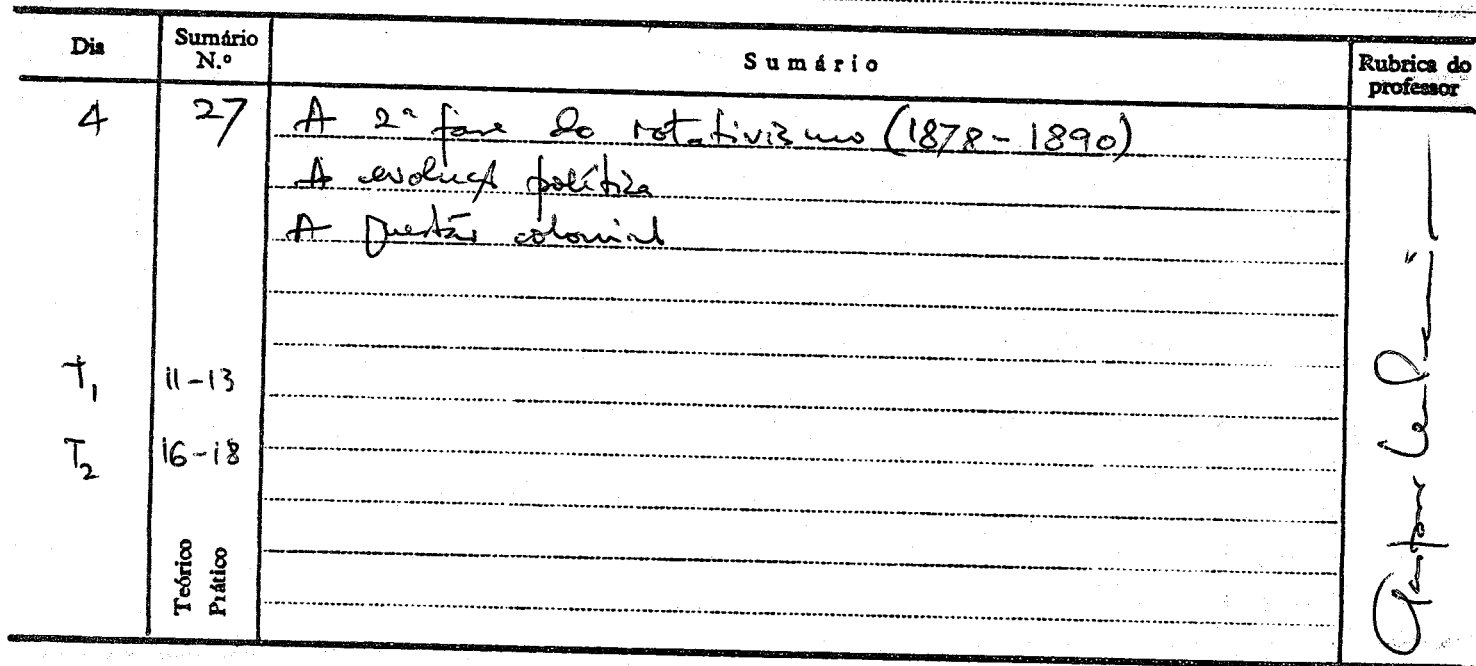 Dia Sumário N.º Sumário Rubrica do professor
4 27 A 2ª fase do rotativismo (1878-1890)
A evolução política
A questão colonial
T1 11-13
T2 16-18
Teórico
Prático